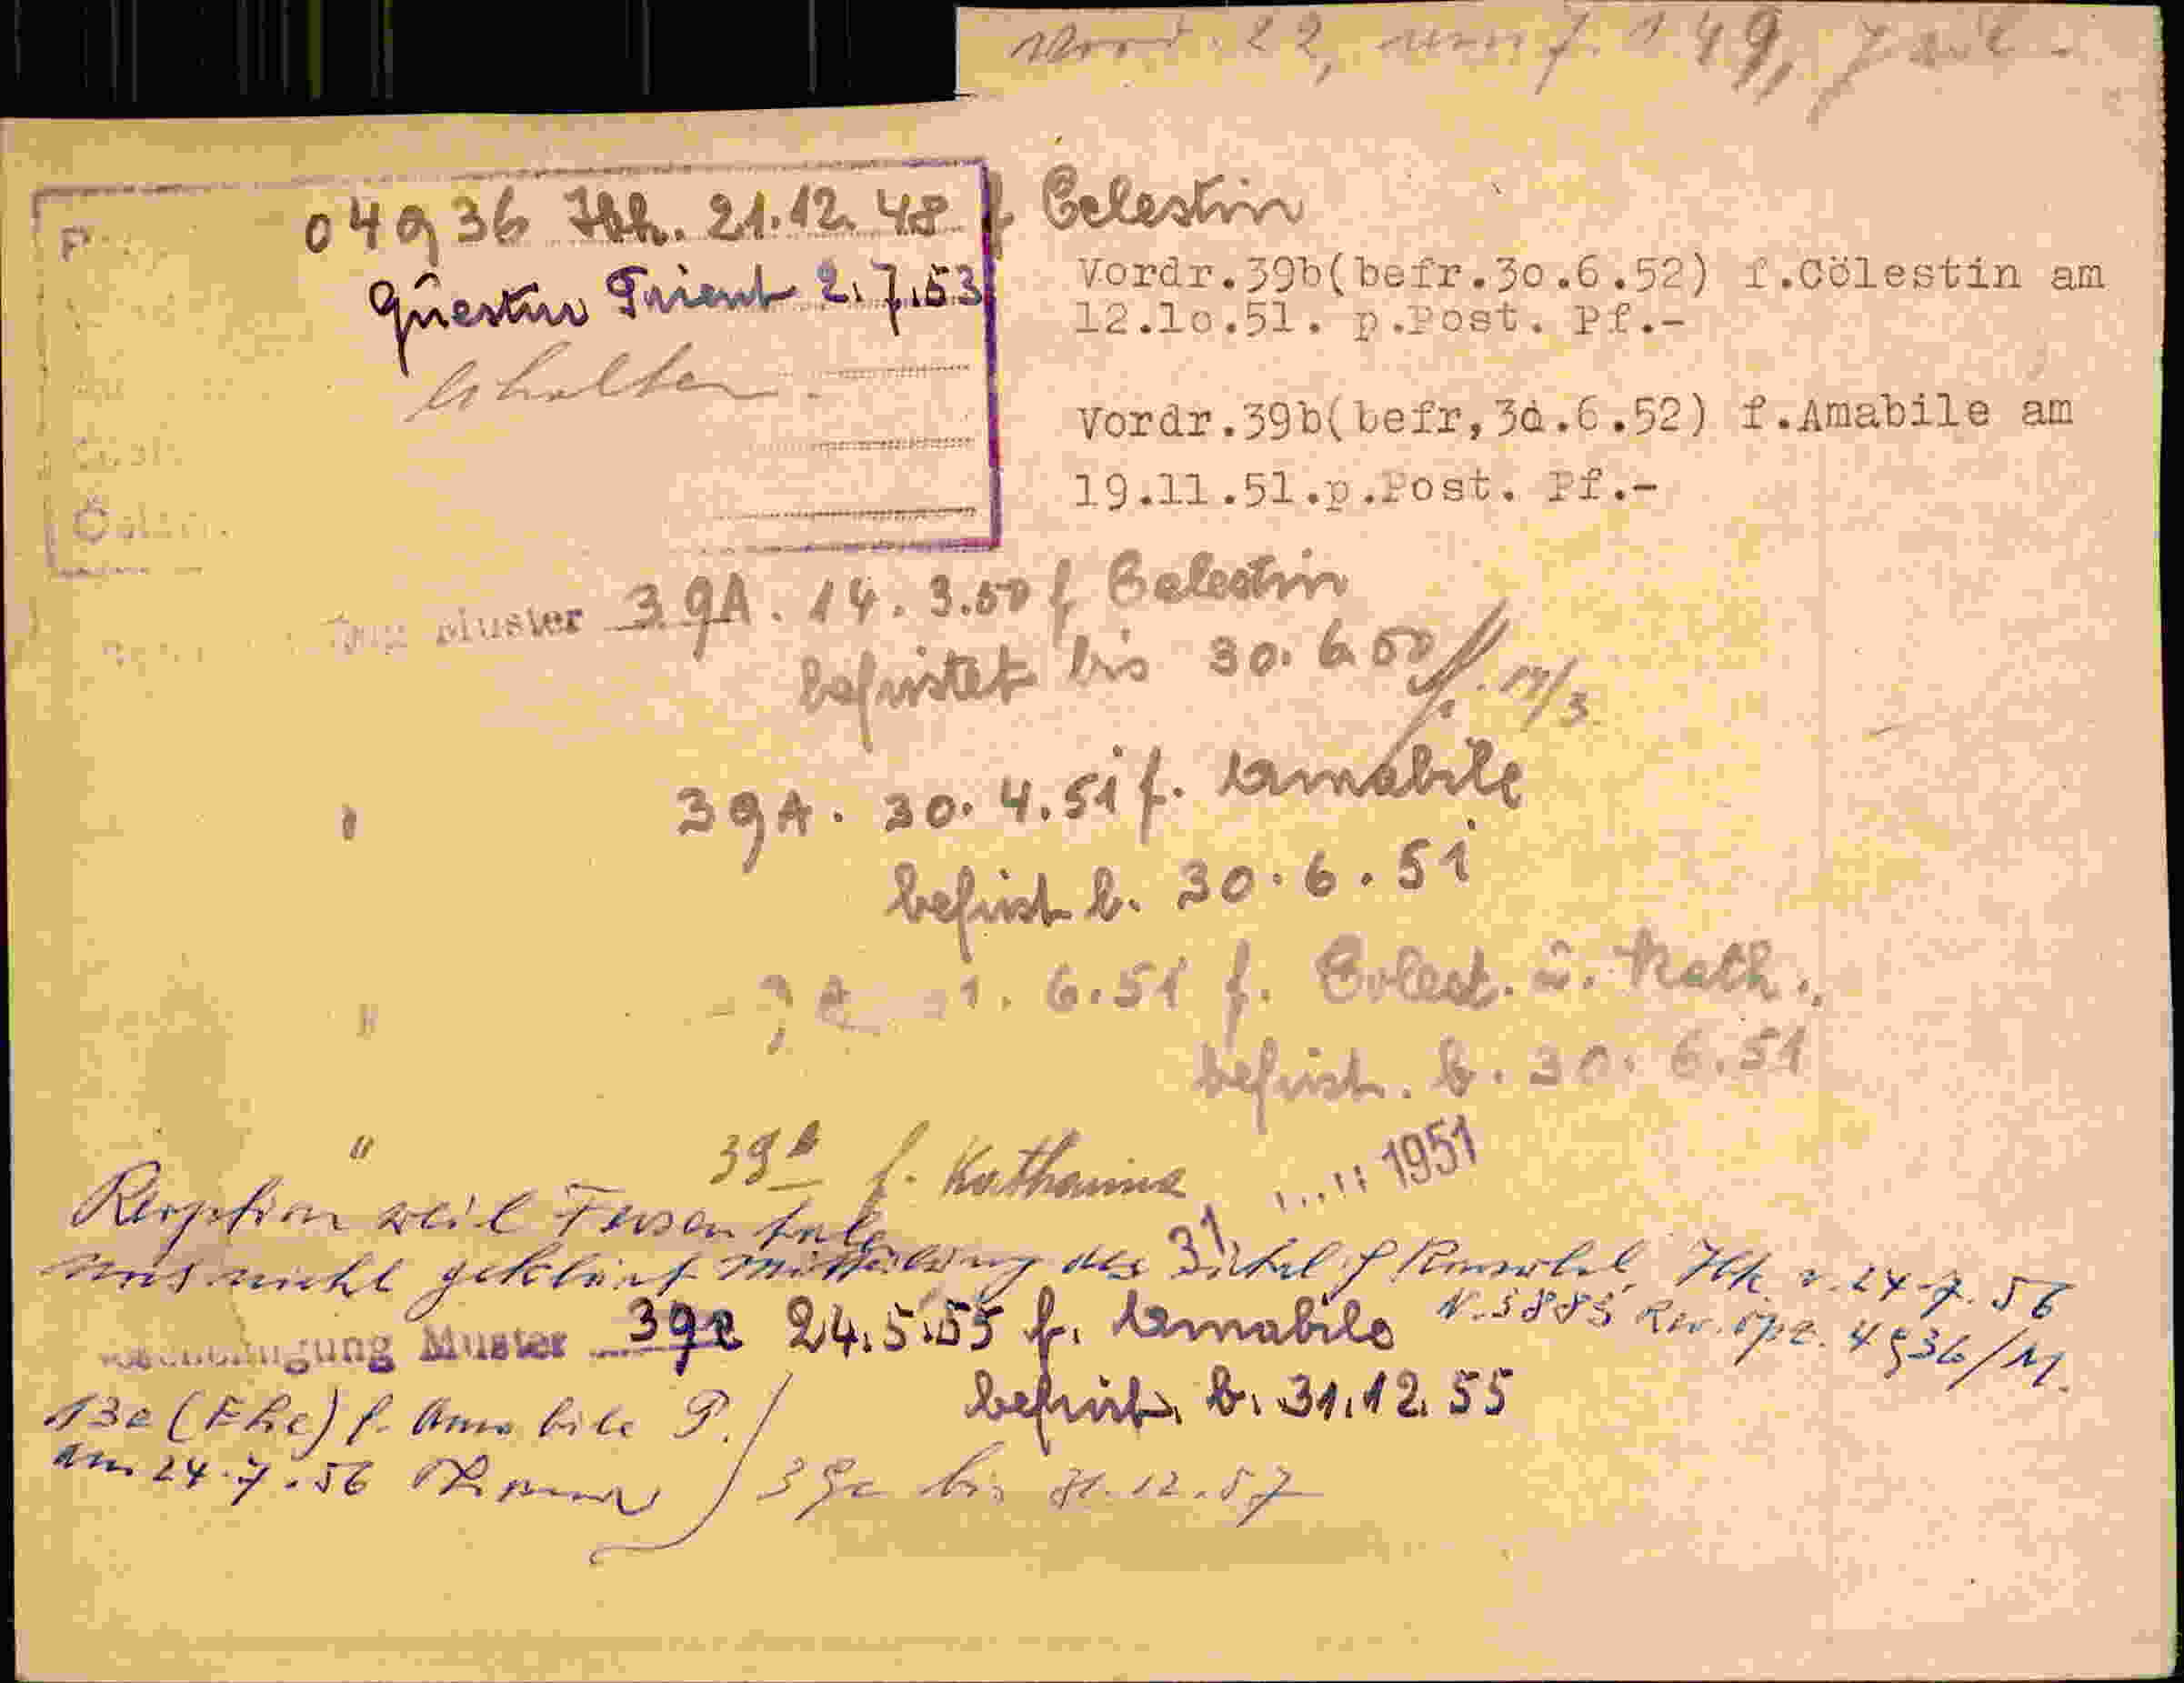 Vord. 22, 149,
04936 Ibk. 21.12.48 f Celestin
Questur Trient 2.7.53
Erhalten.
Vordr.39b(befr.30.6.52) f.Cölestin am
12.10.51. p.Post. Pf.-
Vordr.39b(befr,30.6.52) f.Amabile am
19.11.51.p.Post. Pf.-
Muster 39A. 14. 3.50 f Celestin
befristet bis 30. 6.50 17/3
39A. 30. 4.51 f. Amabile
befrist b. 30. 6. 51
1. 6.51 f. Celest. u. Kath.
befrist. b. 30. 6.51
" 39 f. Katharina
31. 1951
Reoption weil Fersental
nicht geklärt Mitteilung des Ibk. v. 24.7.56
N. 5885 Rev. Opz. 4936/M.
Muster 39c 24.5.55 f. Amabile
befrist. b. 31.12.55
13e (Ehe) f. Amabile P.
am 24.7.56
39c bis 31.12.57